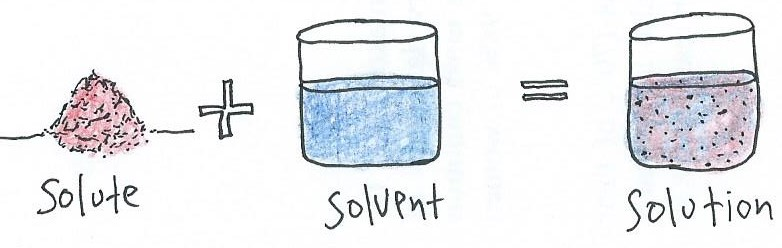 Solute + Solvent = Solution